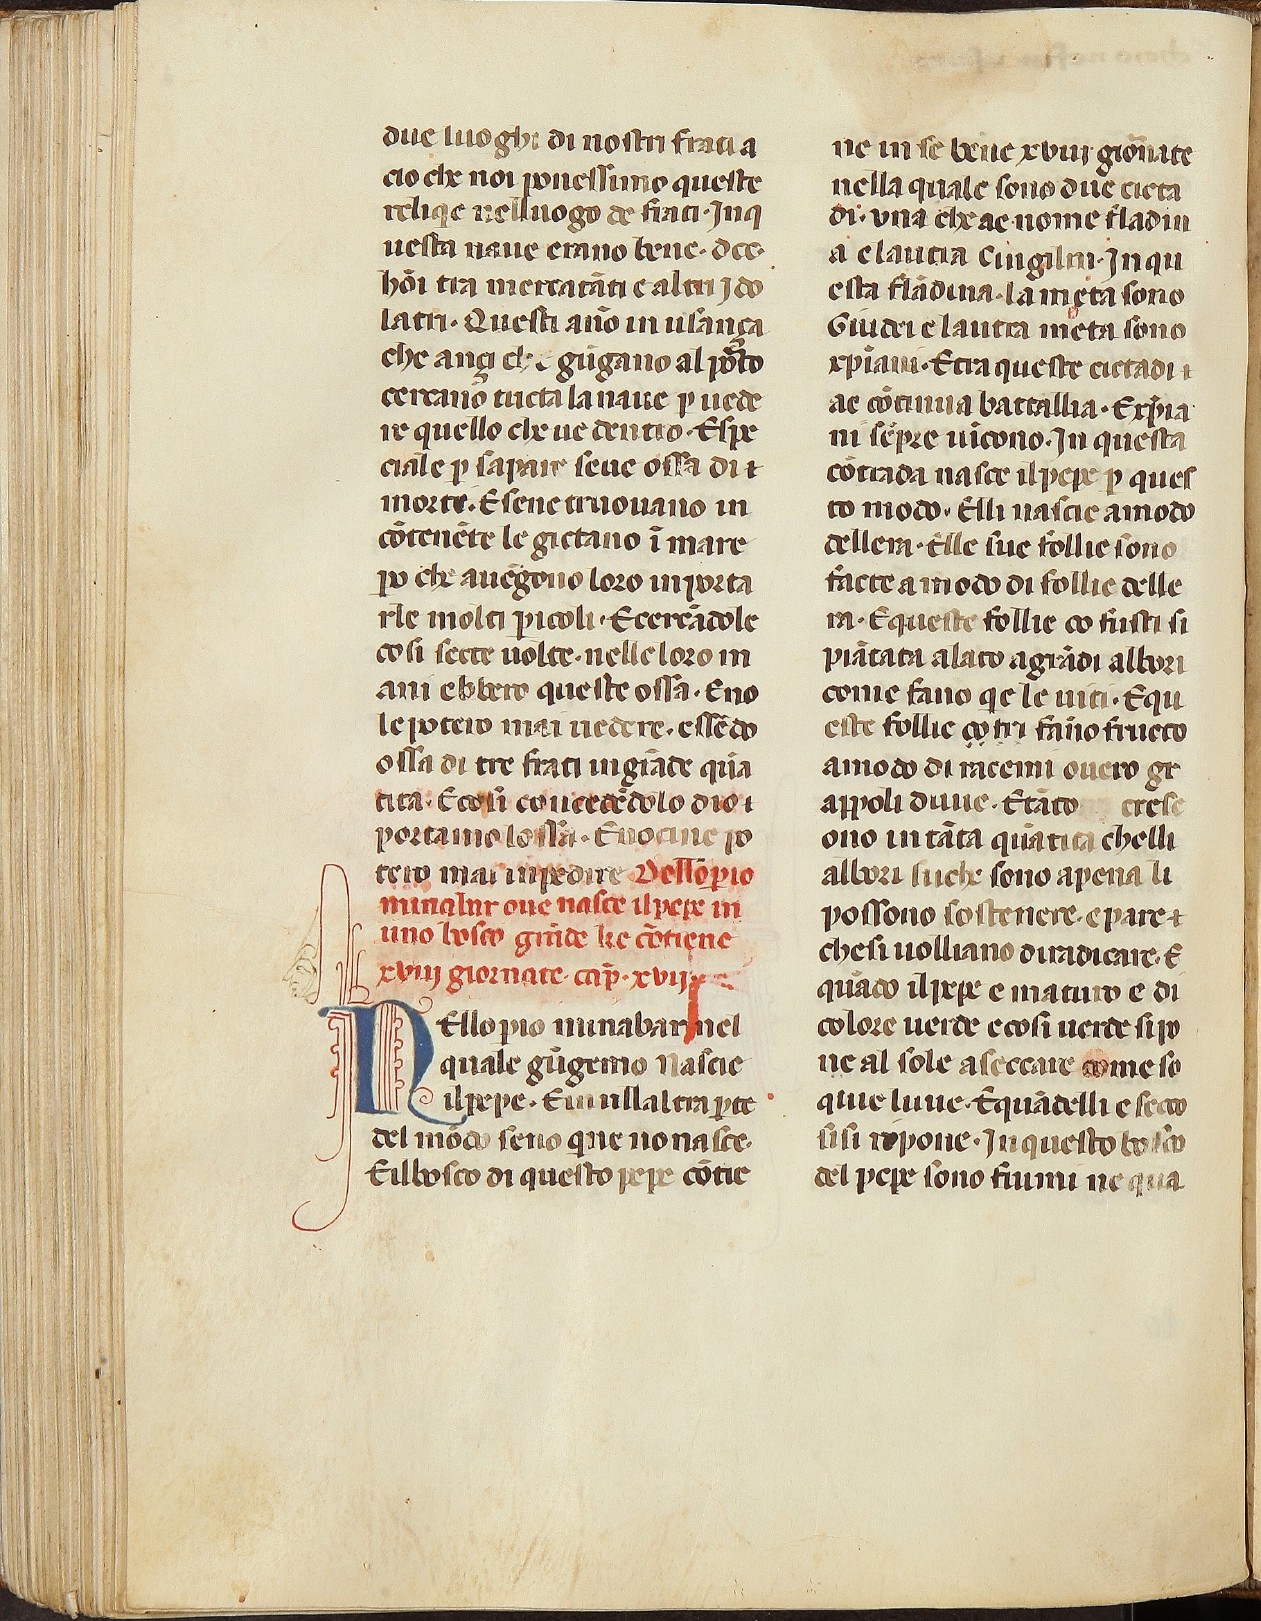 due luoghi di nostri frati a
cio che noi ponessimo queste
reliqe nelluogo de frati · Inq
uesta naue erano bene · dcc ·
hōi tra mercatāti e altri Ido
latri · Questi āno in usança
cheançi che gūgano al porto
cercano tucta la naue p uede
re quello che ue dentro · Espe
ciale p sapair seue ossa di
morte · E sene truouano in
cōtenēte le gictano ī mare
po che auēgono loro in porta
rle molti picoli · E cercādole
cosi secte uolte · nelle loro m
ani ebbero queste ossa · E no
le potero mai uedere · essēdo
ossa di tre frati in grāde quā
tita · E cosi concedēdolo dio
portamo lossa · E no cine po
tero mai inpedire Dello pio
minabar oue nasce il pepe in
uno bosco grāde ke cōtiene
xviij giornate · cap · xvij
Nello pio minabar nel
quale gūgemo nascie
il pepe · E in nullaltra pte
del mōdo seno que no nasce ·
E il bosco di questo pepe cōtie
ne in se bene xviij giornate
nella quale sono due cicta
di · una che ae nome fladin
a e lautra Cingilin · In qu
esta flādina · la meta sono
Giudei e lautra meta sono
xpiani · E tra queste cictadi
ae cōtinua battallia · E xpia
ni sēpre uicono · In questa
cōtrada nasce il pepe p ques
to modo · Elli nascie a modo
dellera · Elle sue follie sono
facte a modo di follie delle
ra · E queste follie co fusti si
piātata alato a grādi albori
come fano qe le uiti · E qu
este follie cotri fāno fructo
a modo di racemi ouero gr
appoli duue · E tāto cresc
ono in tāta quātita chelli
albori siche sono apena li
possono sostenere · e pare
chesi uolliano diradicare · E
quādo il pepe e maturo e di
colore uerde e cosi uerde si po
ne al sole a seccare come so
quie luue · E quādelli e secco
si si ripone · In questo bosco
del pepe sono fiumi ne qua